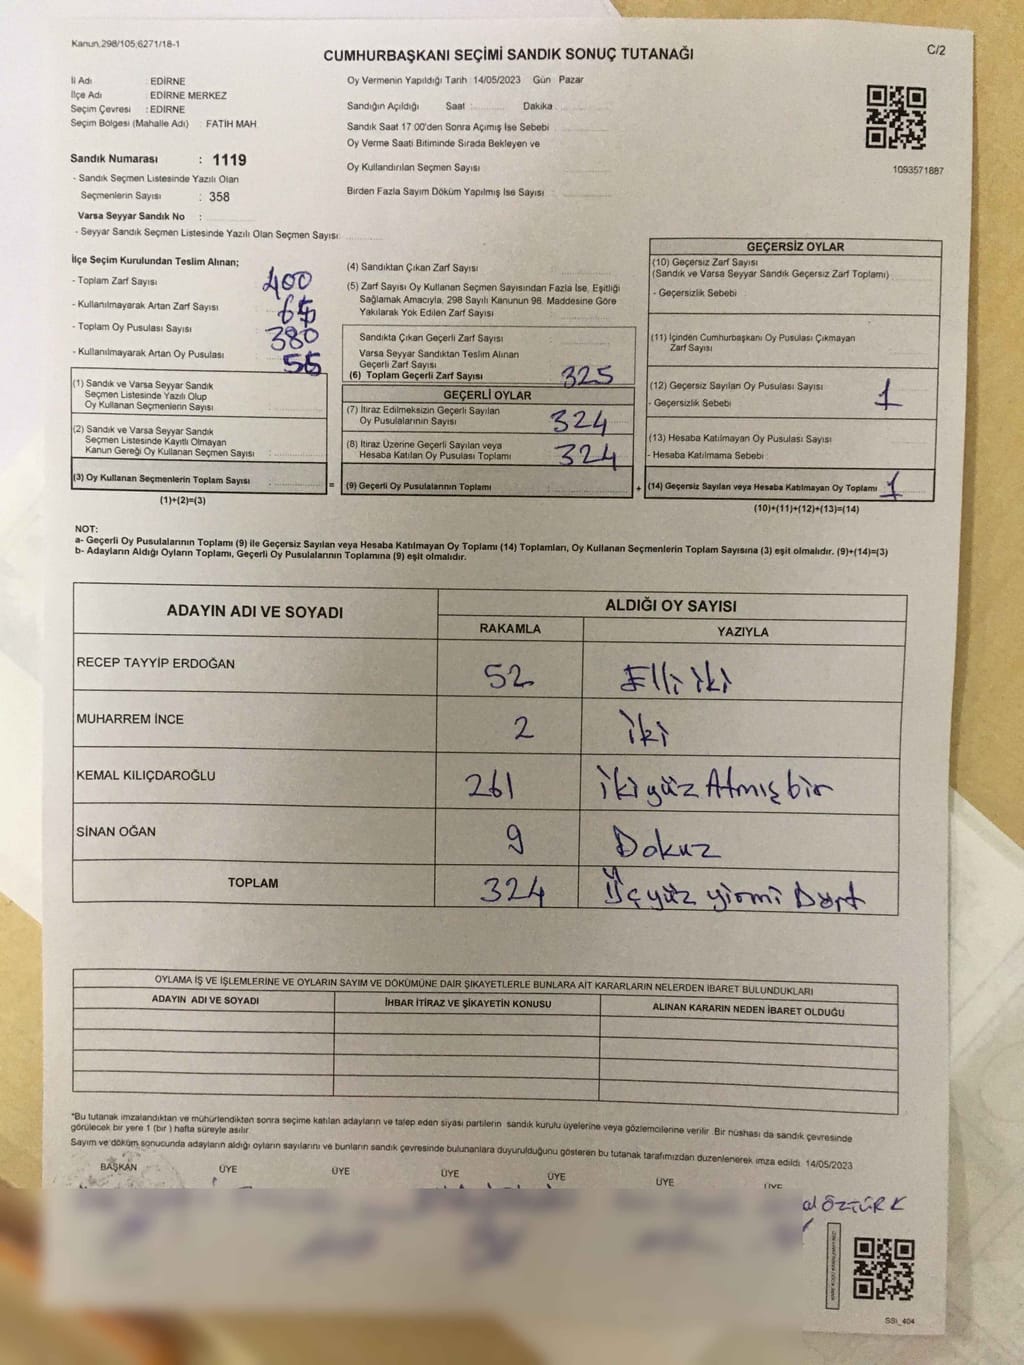 Kanun,298/105;6271/18-1
C/2
CUMHURBAŞKANI SEÇİMİ SANDIK SONUÇ TUTANAĞI
İli Adı : EDİRNE
İlçe Adı : EDİRNE MERKEZ
Seçim Çevresi : EDİRNE
Seçim Bölgesi (Mahalle Adı) : FATİH MAH
Sandık Numarası : 1119
- Sandık Seçmen Listesinde Yazılı Olan
Seçmenlerin Sayısı : 358
Varsa Seyyar Sandık No :
- Seyyar Sandık Seçmen Listesinde Yazılı Olan Seçmen Sayısı:
Oy Vermenin Yapıldığı Tarih 14/05/2023 Gün Pazar
Sandığın Açıldığı Saat Dakika
Sandık Saat 17:00'den Sonra Açılmış İse Sebebi
Oy Verme Saati Bitiminde Sırada Bekleyen ve
Oy Kullandırılan Seçmen Sayısı
Birden Fazla Sayım Döküm Yapılmış İse Sayısı
1093571887
İlçe Seçim Kurulundan Teslim Alınan;
- Toplam Zarf Sayısı 400
- Kullanılmayarak Artan Zarf Sayısı
- Toplam Oy Pusulası Sayısı 380
- Kullanılmayarak Artan Oy Pusulası
(1) Sandık ve Varsa Seyyar Sandık
Seçmen Listesinde Yazılı Olup
Oy Kullanan Seçmenlerin Sayısı
(2) Sandık ve Varsa Seyyar Sandık
Seçmen Listesinde Kayıtlı Olmayan
Kanun Gereği Oy Kullanan Seçmen Sayısı :
(3) Oy Kullanan Seçmenlerin Toplam Sayısı :
(1)+(2)=(3)
=
(4) Sandıktan Çıkan Zarf Sayısı
(5) Zarf Sayısı Oy Kullanan Seçmen Sayısından Fazla İse, Eşitliği
Sağlamak Amacıyla, 298 Sayılı Kanunun 98. Maddesine Göre
Yakılarak Yok Edilen Zarf Sayısı
Sandıkta Çıkan Geçerli Zarf Sayısı
Varsa Seyyar Sandıktan Teslim Alınan
Geçerli Zarf Sayısı
(6) Toplam Geçerli Zarf Sayısı 325
GEÇERLİ OYLAR
(7) İtiraz Edilmeksizin Geçerli Sayılan
Oy Pusulalarının Sayısı 324
(8) İtiraz Üzerine Geçerli Sayılan veya
Hesaba Katılan Oy Pusulası Toplamı 324
(9) Geçerli Oy Pusulalarının Toplamı
+
GEÇERSİZ OYLAR
(10) Geçersiz Zarf Sayısı
(Sandık ve Varsa Seyyar Sandık Geçersiz Zarf Toplamı)
- Geçersizlik Sebebi
(11) İçinden Cumhurbaşkanı Oy Pusulası Çıkmayan
Zarf Sayısı
(12) Geçersiz Sayılan Oy Pusulası Sayısı 1
- Geçersizlik Sebebi
(13) Hesaba Katılmayan Oy Pusulası Sayısı
- Hesaba Katılmama Sebebi
(14) Geçersiz Sayılan veya Hesaba Katılmayan Oy Toplamı 1
(10)+(11)+(12)+(13)=(14)
NOT:
a- Geçerli Oy Pusulalarının Toplamı (9) ile Geçersiz Sayılan veya Hesaba Katılmayan Oy Toplamı (14) Toplamları, Oy Kullanan Seçmenlerin Toplam Sayısına (3) eşit olmalıdır. (9)+(14)=(3)
b- Adayların Aldığı Oyların Toplamı, Geçerli Oy Pusulalarının Toplamına (9) eşit olmalıdır.
ADAYIN ADI VE SOYADI
ALDIĞI OY SAYISI
RAKAMLA YAZIYLA
RECEP TAYYİP ERDOĞAN 52 Elli iki
MUHARREM İNCE 2 iki
KEMAL KILIÇDAROĞLU 261 ikiyüz Atmışbir
SİNAN OĞAN 9 Dokuz
TOPLAM 324 Üçyüz yirmi Dört
OYLAMA İŞ VE İŞLEMLERİNE VE OYLARIN SAYIM VE DÖKÜMÜNE DAİR ŞİKAYETLERLE BUNLARA AİT KARARLARIN NELERDEN İBARET BULUNDUKLARI
ADAYIN ADI VE SOYADI İHBAR İTİRAZ VE ŞİKAYETİN KONUSU ALINAN KARARIN NEDEN İBARET OLDUĞU
*Bu tutanak imzalandıktan ve mühürlendikten sonra seçime katılan adayların ve talep eden siyasi partilerin sandık kurulu üyelerine veya gözlemcilerine verilir. Bir nüshası da sandık çevresinde
görülecek bir yere 1 (bir ) hafta süreyle asılır.
Sayım ve döküm sonucunda adayların aldığı oyların sayılarını ve bunların sandık çevresinde bulunanlara duyurulduğunu gösteren bu tutanak tarafımızdan düzenlenerek imza edildi. 14/05/2023
BAŞKAN ÜYE ÜYE ÜYE ÜYE ÜYE ÜYE
ÖZTÜRK
SSİ_404